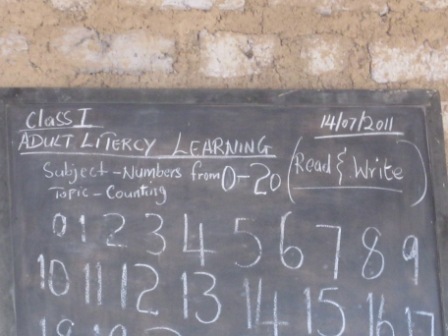 Class I 14/07/2011
ADULT LITERCY LEARNING
Subject - Numbers from 0-20 (Read & Write)
Topic - Counting
0 1 2 3 4 5 6 7 8 9
10 11 12 13 14 15 16 17
18 19 20